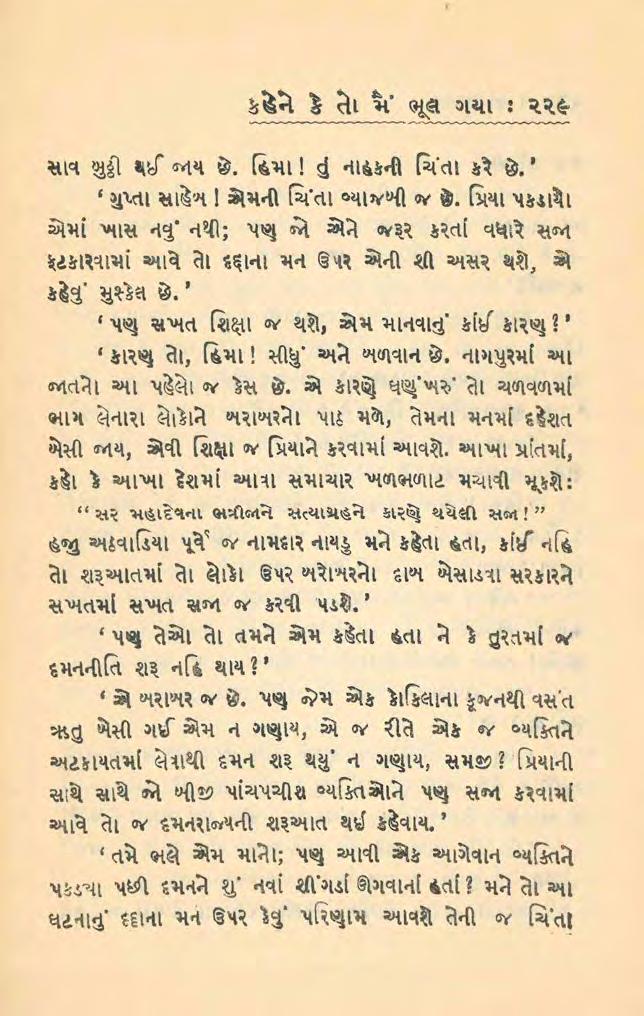 કહેને કે તો મૈં ભૂલ ગયા : ૨૨૯
સાવ બુઠ્ઠી થઈ જાય છે. હિમા! તું નાહકની ચિંતા કરે છે.’
‘ ગુપ્તા સાહેબ ! એમની ચિંતા વ્યાજબી જ છે. પ્રિયા પકડાયો
એમાં ખાસ નવું નથી; પણ જો એને જરૂર કરતાં વધારે સજા
ફટકારવામાં આવે તો દદ્દાના મન ઉપર એની શી અસર થશે, એ
કહેવું મુશ્કેલ છે.’
‘ પણ સખત શિક્ષા જ થશે, એમ માનવાનું કાંઈ કારણ ?’
‘ કારણ તો, હિમા! સીધું અને બળવાન છે. નાગપુરમાં આ
જાતનો આ પહેલો જ કેસ છે. એ કારણે ઘણુંખરું તો ચળવળમાં
ભાગ લેનારા લોકોને બરાબરનો પાઠ મળે, તેમના મનમાં દહેશત
બેસી જાય, એવી શિક્ષા જ પ્રિયાને કરવામાં આવશે. આખા પ્રાંતમાં,
કહો કે આખા દેશમાં આવા સમાચાર ખળભળાટ મચાવી મૂકશે:
“ સર મહાદેવના ભત્રીજાને સત્યાગ્રહને કારણે થયેલી સજા!”
હજી અઠવાડિયા પૂર્વે જ નામદાર નાયડુ મને કહેતા હતા, કાંઈ નહિ
તો શરૂઆતમાં તો લોકો ઉપર બરોબરનો દાબ બેસાડવા સરકારને
સખતમાં સખત સજા જ કરવી પડશે.’
‘ પણ તેઓ તો તમને એમ કહેતા હતા ને કે તુરતમાં જ
દમનનીતિ શરૂ નહિ થાય ?’
‘ એ બરાબર જ છે. પણ જેમ એક કોકિલાના કૂજનથી વસંત
ઋતુ બેસી ગઈ એમ ન ગણાય, એ જ રીતે એક જ વ્યક્તિને
અટકાયતમાં લેવાથી દમન શરૂ થયું ન ગણાય, સમજી ? પ્રિયાની
સાથે સાથે જો બીજી પાંચપચીશ વ્યક્તિઓને પણ સજા કરવામાં
આવે તો જ દમનરાજ્યની શરૂઆત થઈ કહેવાય.’
‘ તમે ભલે એમ માનો; પણ આવી એક આગેવાન વ્યક્તિને
પકડ્યા પછી દમનને શું નવાં શીંગડાં ઊગવાનાં હતાં ? મને તો આ
ઘટનાનું દદ્દાના મન ઉપર કેવું પરિણામ આવશે તેની જ ચિંતા